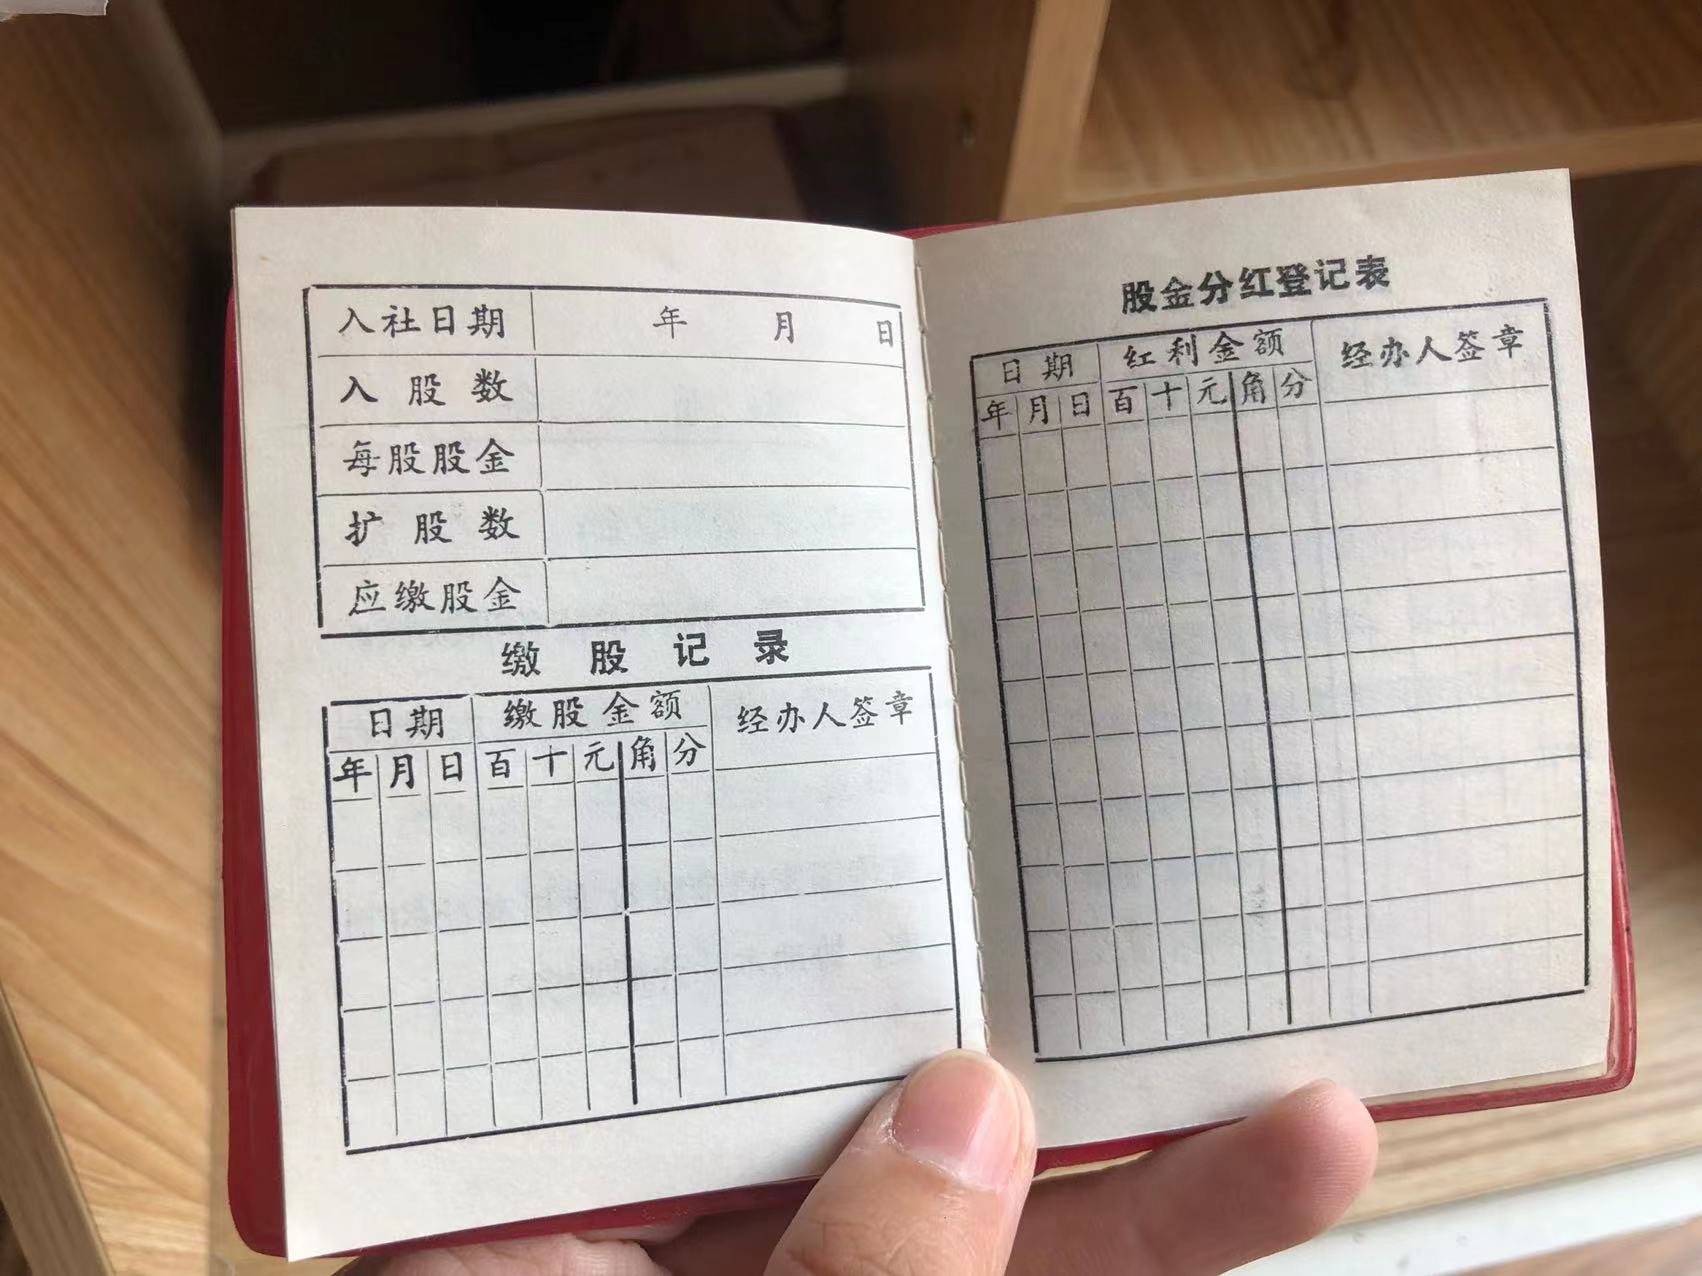 入社日期 年 月 日
入股数
每股股金
扩股数
应缴股金
缴股记录
日期 缴股金额 经办人签章
年 月 日 百 十 元 角 分
股金分红登记表
日期 红利金额 经办人签章
年 月 日 百 十 元 角 分